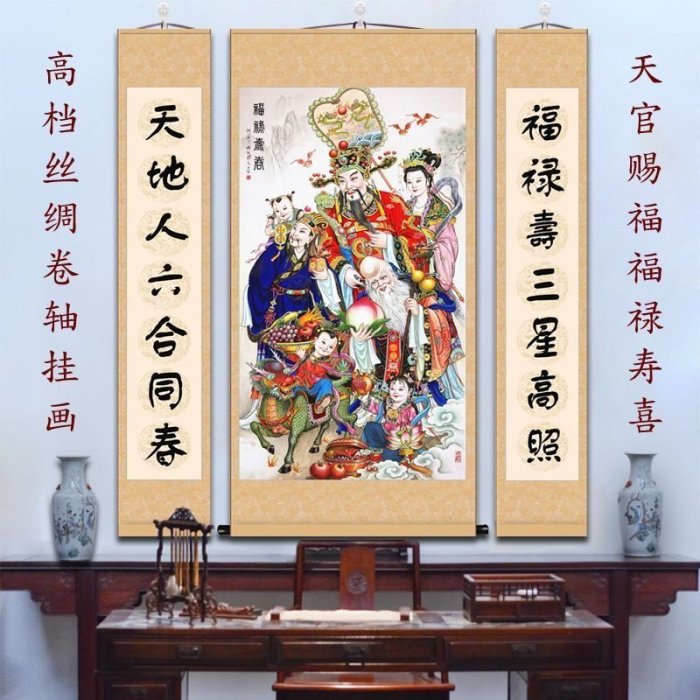 天官赐福福禄寿喜
福禄壽三星高照
福祿壽喜
天地人六合同春
高档丝绸卷轴挂画